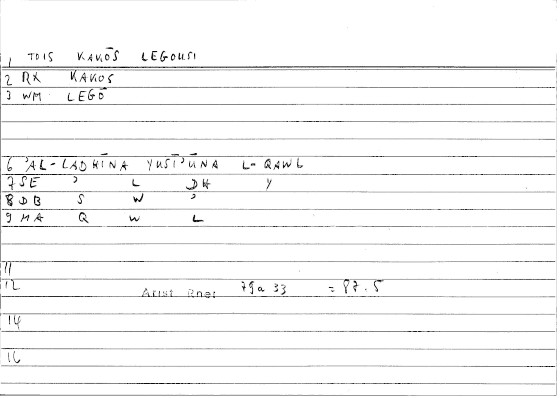 1 TOIS KAKŌS LEGOUSI
2 RX KAKOS
3 WM LEGŌ
6 ʾAL-LADHĪNA YUSĪʾŪNA L-QAWL
7 SE ʾ L DH Y
8 DB S W ʾ
9 MA Q W L
11
12 Arist Rhet 79a 33 = 87.5
14
16